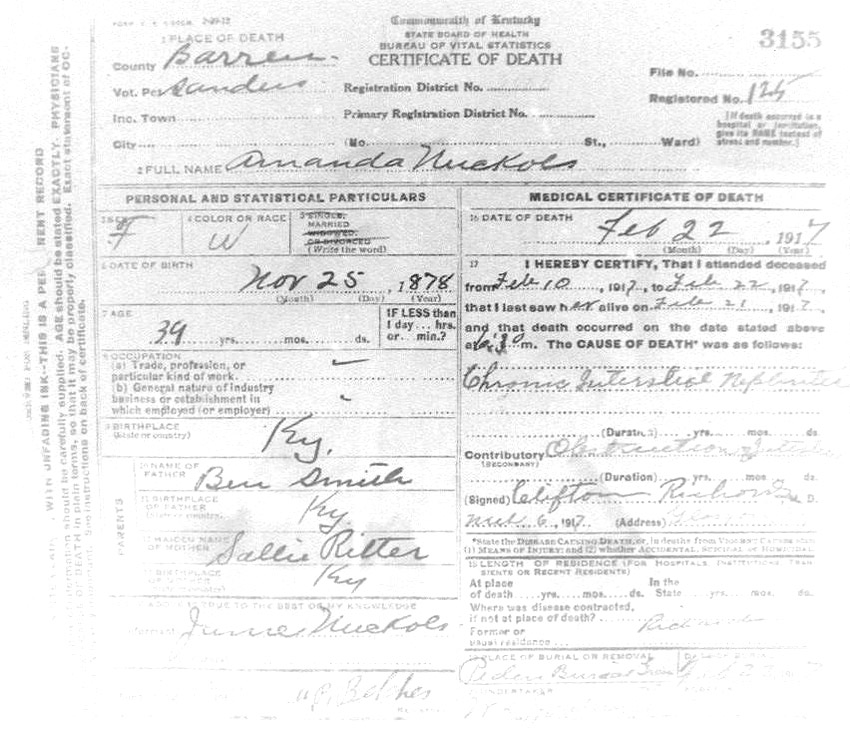 Commonwealth of Kentucky
STATE BOARD OF HEALTH
BUREAU OF VITAL STATISTICS
CERTIFICATE OF DEATH
3155
1 PLACE OF DEATH
County Barren
Vot. Pct Sanders
Inc. Town
City (No. St., Ward)
Registration District No.
Primary Registration District No.
File No.
Registered No. 125
[If death occurred in a hospital or institution, give its NAME instead of street and number.]
2 FULL NAME Amanda Nuckols
PERSONAL AND STATISTICAL PARTICULARS
3 SEX F
4 COLOR OR RACE W
5 SINGLE, MARRIED WIDOWED, OR DIVORCED (Write the word)
6 DATE OF BIRTH Nov 25, 1878
(Month) (Day) (Year)
7 AGE 39 yrs. mos. ds.
IF LESS than 1 day... hrs. or... min.?
8 OCCUPATION
(a) Trade, profession, or particular kind of work
(b) General nature of industry business or establishment in which employed (or employer)
9 BIRTHPLACE (State or country) Ky.
PARENTS
10 NAME OF FATHER Ben Smith
11 BIRTHPLACE OF FATHER (State or country) Ky.
12 MAIDEN NAME OF MOTHER Sallie Ritter
BIRTHPLACE OF MOTHER Ky
TO THE BEST OF MY KNOWLEDGE
Nuckols
MEDICAL CERTIFICATE OF DEATH
16 DATE OF DEATH Feb 22, 1917
(Month) (Day) (Year)
17 I HEREBY CERTIFY, That I attended deceased
from Feb 10, 1917, to Feb 22, 1917,
that I last saw her alive on Feb 21, 1917,
and that death occurred on the date stated above
at m. The CAUSE OF DEATH* was as follows:
Chronic
(Duration) yrs. mos. ds.
Contributory Obstruction
(SECONDARY)
(Duration) yrs. mos. ds.
(Signed) Clifton M. D.
6, 1917. (Address)
*State the DISEASE CAUSING DEATH, or, in deaths from VIOLENT CAUSES state
(1) MEANS OF INJURY; and (2) whether ACCIDENTAL, SUICIDAL or HOMICIDAL
18 LENGTH OF RESIDENCE (FOR HOSPITALS, INSTITUTIONS, TRANSIENTS OR RECENT RESIDENTS)
At place of death yrs. mos. ds. In the State yrs. mos. ds.
Where was disease contracted, if not at place of death?
Former or usual residence
PLACE OF BURIAL OR REMOVAL
UNDERTAKER
WITH UNFADING INK--THIS IS A PERMANENT RECORD
information should be carefully supplied. AGE should be stated EXACTLY. PHYSICIANS
OF DEATH in plain terms, so that it may be properly classified. Exact statement of OC-
See instructions on back of certificate.